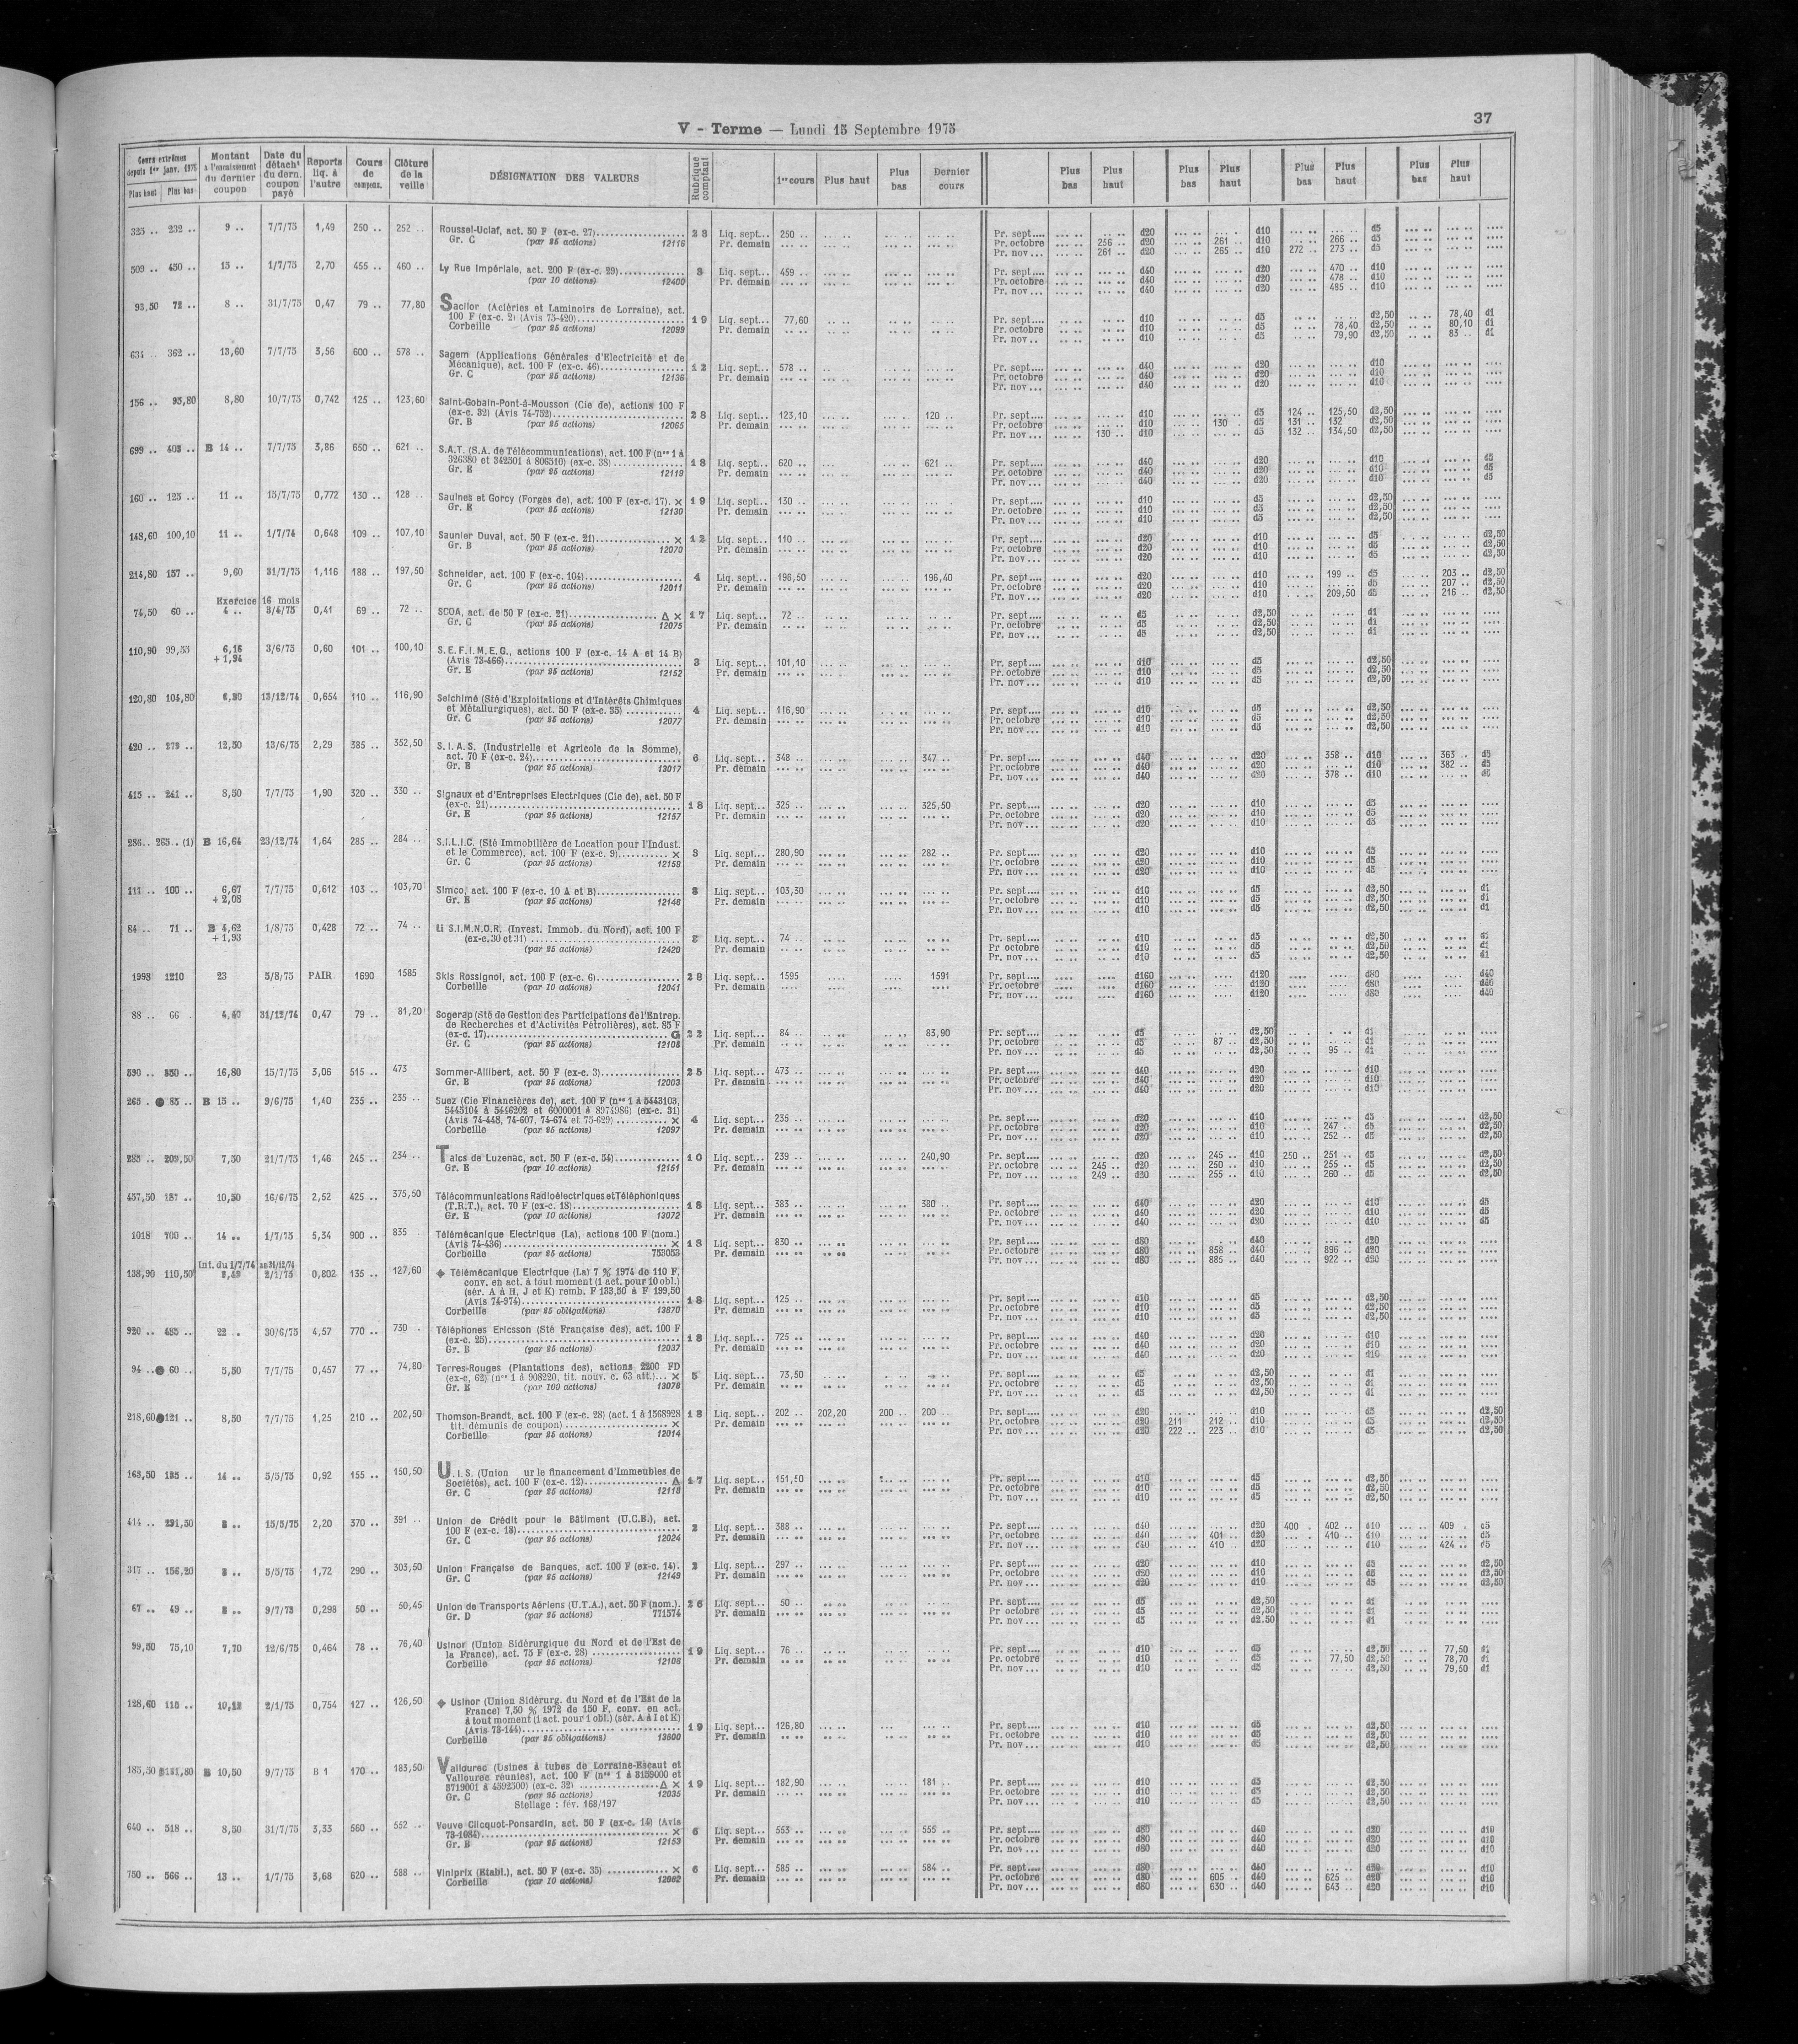 V - Terme — Lundi 15 Septembre 1975
37
Cours extrêmes depuis 1er janv. 1975 Plus haut Plus bas
Montant à l'encaissement du dernier coupon
Date du détacht du dern. coupon payé
Reports liq. à l'autre
Cours de compens.
Clôture de la veille
DÉSIGNATION DES VALEURS
Rubrique comptant
1er cours Plus haut Plus bas Dernier cours
Plus bas Plus haut Plus bas Plus haut Plus bas Plus haut Plus bas Plus haut
325 .. 232 .. 9 .. 7/7/75 1,49 250 .. 252 .. Roussel-Uclaf, act. 50 F (ex-c. 27) 28 Liq. sept... 250 .. Pr. sept.... d20 d10 d5
Gr. C (par 25 actions) 12116 Pr. demain Pr. octobre 256 .. d20 261 .. d10 266 .. d5
Pr. nov... 261 .. d20 265 .. d10 272 .. 273 .. d5
509 .. 450 .. 15 .. 1/7/75 2,70 455 .. 460 .. Ly Rue Impériale, act. 200 F (ex-c. 29) 3 Liq. sept... 459 .. Pr. sept.... d40 d20 470 .. d10
(par 10 actions) 12400 Pr. demain Pr. octobre d40 d20 478 .. d10
Pr. nov... d40 d20 485 .. d10
93,50 72 .. 8 .. 31/7/75 0,47 79 .. 77,80 Sacilor (Aciéries et Laminoirs de Lorraine), act.
100 F (ex-c. 2) (Avis 75-420) 19 Liq. sept... 77,60 Pr. sept.... d10 d5 d2,50 78,40 d1
Corbeille (par 25 actions) 12099 Pr. demain Pr. octobre d10 d5 78,40 d2,50 80,10 d1
Pr. nov... d10 d5 79,90 d2,50 83 .. d1
634 .. 362 .. 13,60 7/7/75 3,56 600 .. 578 .. Sagem (Applications Générales d'Electricité et de
Mécanique), act. 100 F (ex-c. 46) 12 Liq. sept... 578 .. Pr. sept.... d40 d20 d10
Gr. C (par 25 actions) 12136 Pr. demain Pr. octobre d40 d20 d10
Pr. nov... d40 d20 d10
156 .. 95,80 8,80 10/7/75 0,742 125 .. 123,60 Saint-Gobain-Pont-à-Mousson (Cie de), actions 100 F
(ex-c. 32) (Avis 74-752) 28 Liq. sept... 123,10 120 .. Pr. sept.... d10 d5 124 .. 125,50 d2,50
Gr. B (par 25 actions) 12065 Pr. demain Pr. octobre d10 130 .. d5 131 .. 132 d2,50
Pr. nov... 130 .. d10 d5 132 .. 134,50 d2,50
699 .. 403 .. B 14 .. 7/7/75 3,86 650 .. 621 .. S.A.T. (S.A. de Télécommunications), act. 100 F (nos 1 à
326380 et 342501 à 806510) (ex-c. 38) 18 Liq. sept... 620 .. 621 .. Pr. sept.... d40 d20 d10 d5
Gr. E (par 25 actions) 12119 Pr. demain Pr. octobre d40 d20 d10 d5
Pr. nov... d40 d20 d10 d5
160 .. 123 .. 11 .. 15/7/75 0,772 130 .. 128 .. Saulnes et Gorcy (Forges de), act. 100 F (ex-c. 17). × 19 Liq. sept... 130 .. Pr. sept.... d10 d5 d2,50
Gr. E (par 25 actions) 12130 Pr. demain Pr. octobre d10 d5 d2,50
Pr. nov... d10 d5 d2,50
148,60 100,10 11 .. 1/7/74 0,648 109 .. 107,10 Saunier Duval, act. 50 F (ex-c. 21) × 12 Liq. sept... 110 .. Pr. sept.... d20 d10 d5 d2,50
Gr. B (par 25 actions) 12070 Pr. demain Pr. octobre d20 d10 d5 d2,50
Pr. nov... d20 d10 d5 d2,50
214,80 157 .. 9,60 31/7/75 1,116 188 .. 197,50 Schneider, act. 100 F (ex-c. 104) 4 Liq. sept... 196,50 196,40 Pr. sept.... d20 d10 199 .. d5 203 .. d2,50
Gr. C (par 25 actions) 12011 Pr. demain Pr. octobre d20 d10 d5 207 .. d2,50
Pr. nov... d20 d10 209,50 d5 216 .. d2,50
Exercice 16 mois
74,50 60 .. 4 .. 3/4/75 0,41 69 .. 72 .. SCOA, act. de 50 F (ex-c. 21) Δ × 17 Liq. sept... 72 .. Pr. sept.... d5 d2,50 d1
Gr. C (par 25 actions) 12075 Pr. demain Pr. octobre d5 d2,50 d1
Pr. nov... d5 d2,50 d1
110,90 99,55 6,16 3/6/75 0,60 101 .. 100,10 S.E.F.I.M.E.G., actions 100 F (ex-c. 14 A et 14 B)
+ 1,94 (Avis 73-466) 3 Liq. sept... 101,10 Pr. sept.... d10 d5 d2,50
Gr. E (par 25 actions) 12152 Pr. demain Pr. octobre d10 d5 d2,50
Pr. nov... d10 d5 d2,50
120,80 104,80 6,30 13/12/74 0,654 110 .. 116,90 Selchimé (Sté d'Exploitations et d'Intérêts Chimiques
et Métallurgiques), act. 50 F (ex-c. 35) 4 Liq. sept... 116,90 Pr. sept.... d10 d5 d2,50
Gr. C (par 25 actions) 12077 Pr. demain Pr. octobre d10 d5 d2,50
Pr. nov... d10 d5 d2,50
420 .. 279 .. 12,50 13/6/75 2,29 385 .. 352,50 S.I.A.S. (Industrielle et Agricole de la Somme),
act. 70 F (ex-c. 24) 6 Liq. sept... 348 .. 347 .. Pr. sept.... d40 d20 358 .. d10 363 .. d5
Gr. E (par 25 actions) 13017 Pr. demain Pr. octobre d40 d20 d10 382 .. d5
Pr. nov... d40 d20 378 .. d10 d5
415 .. 241 .. 8,50 7/7/75 1,90 320 .. 330 .. Signaux et d'Entreprises Electriques (Cie de), act. 50 F
(ex-c. 21) 18 Liq. sept... 325 .. 325,50 Pr. sept.... d20 d10 d5
Gr. E (par 25 actions) 12157 Pr. demain Pr. octobre d20 d10 d5
Pr. nov... d20 d10 d5
286 .. 265 .. (1) B 16,64 23/12/74 1,64 285 .. 284 .. S.I.L.I.C. (Sté Immobilière de Location pour l'Indust.
et le Commerce), act. 100 F (ex-c. 9) × 3 Liq. sept... 280,90 282 .. Pr. sept.... d20 d10 d5
Gr. C (par 25 actions) 12159 Pr. demain Pr. octobre d20 d10 d5
Pr. nov... d20 d10 d5
111 .. 100 .. 6,67 7/7/75 0,612 103 .. 103,70 Simco, act. 100 F (ex-c. 10 A et B) 3 Liq. sept... 103,30 Pr. sept.... d10 d5 d2,50 d1
+ 2,08 Gr. B (par 25 actions) 12146 Pr. demain Pr. octobre d10 d5 d2,50 d1
Pr. nov... d10 d5 d2,50 d1
84 .. 71 .. B 4,62 1/8/75 0,428 72 .. 74 .. Li S.I.M.N.O.R. (Invest. Immob. du Nord), act. 100 F
+ 1,93 (ex-c. 30 et 31) 3 Liq. sept... 74 .. Pr. sept.... d10 d5 d2,50 d1
(par 25 actions) 12420 Pr. demain Pr. octobre d10 d5 d2,50 d1
Pr. nov... d10 d5 d2,50 d1
1998 1210 23 5/8/75 PAIR 1690 1585 Skis Rossignol, act. 100 F (ex-c. 6) 28 Liq. sept... 1595 1591 Pr. sept.... d160 d120 d80 d40
Corbeille (par 10 actions) 12041 Pr. demain Pr. octobre d160 d120 d80 d40
Pr. nov... d160 d120 d80 d40
88 .. 66 . 4,40 31/12/74 0,47 79 .. 81,20 Sogerap (Sté de Gestion des Participations de l'Entrep.
de Recherches et d'Activités Pétrolières), act. 85 F
(ex-c. 17) G 22 Liq. sept... 84 .. 83,90 Pr. sept.... d5 d2,50 d1
Gr. C (par 25 actions) 12108 Pr. demain Pr. octobre d5 87 .. d2,50 d1
Pr. nov... d5 d2,50 95 .. d1
590 .. 350 .. 16,80 15/7/75 3,06 515 .. 473 Sommer-Allibert, act. 50 F (ex-c. 3) 25 Liq. sept... 473 .. Pr. sept.... d40 d20 d10
Gr. B (par 25 actions) 12003 Pr. demain Pr. octobre d40 d20 d10
Pr. nov... d40 d20 d10
265 . ● 85 .. B 15 .. 9/6/75 1,40 235 .. 235 .. Suez (Cie Financières de), act. 100 F (nos 1 à 5443103,
5445104 à 5446202 et 6000001 à 8974986) (ex-c. 31)
(Avis 74-448, 74-607, 74-674 et 75-629) × 4 Liq. sept... 235 .. Pr. sept.... d20 d10 d5 d2,50
Corbeille (par 25 actions) 12097 Pr. demain Pr. octobre d20 d10 247 .. d5 d2,50
Pr. nov... d20 d10 252 .. d5 d2,50
285 .. 209,50 7,50 21/7/75 1,46 245 .. 234 .. Talcs de Luzenac, act. 50 F (ex-c. 54) 10 Liq. sept... 239 .. 240,90 Pr. sept.... d20 245 .. d10 250 .. 251 .. d5 d2,50
Gr. E (par 10 actions) 12151 Pr. demain Pr. octobre 245 .. d20 250 .. d10 255 .. d5 d2,50
Pr. nov 249 .. d20 255 .. d10 260 .. d5 d2,50
457,50 157 .. 10,50 16/6/75 2,52 425 .. 375,50 Télécommunications Radioélectriques et Téléphoniques
(T.R.T.), act. 70 F (ex-c. 18) 18 Liq. sept... 383 .. 380 .. Pr. sept.... d40 d20 d10 d5
Gr. E (par 10 actions) 13072 Pr. demain Pr. octobre d40 d20 d10 d5
Pr. nov... d40 d20 d10 d5
1018 700 .. 14 .. 1/7/75 5,34 900 .. 835 . Télémécanique Electrique (La), actions 100 F (nom.)
(Avis 74-436) × 18 Liq. sept... 830 .. Pr. sept.... d80 d40 d20
Corbeille (par 25 actions) 753053 Pr. demain Pr. octobre d80 858 .. d40 896 .. d20
Pr. nov... d80 885 .. d40 922 .. d20
Int. du 1/7/74 au 31/12/74
138,90 110,50 3,42 2/1/75 0,802 135 .. 127,60 ◆ Télémécanique Electrique (La) 7 % 1974 de 110 F,
conv. en act. à tout moment (1 act. pour 10 obl.)
(sér. A à H, J et K) remb. F 133,50 à F 199,50
(Avis 74-974) 18 Liq. sept... 125 .. Pr. sept.... d10 d5 d2,50
Corbeille (par 25 obligations) 13670 Pr. demain Pr. octobre d10 d5 d2,50
Pr. nov... d10 d5 d2,50
920 .. 485 .. 22 .. 30/6/75 4,57 770 .. 730 . Téléphones Ericsson (Sté Française des), act. 100 F
(ex-c. 25) 18 Liq. sept... 725 .. Pr. sept.... d40 d20 d10
Gr. B (par 25 actions) 12037 Pr. demain Pr. octobre d40 d20 d10
Pr. nov... d40 d20 d10
94 .. ● 60 .. 5,50 7/7/75 0,457 77 .. 74,80 Terres-Rouges (Plantations des), actions 2200 FD
(ex-c. 62) (nos 1 à 908220, tit. nouv. c. 63 att.)... × 5 Liq. sept... 73,50 Pr. sept.... d5 d2,50 d1
Gr. E (par 100 actions) 13078 Pr. demain Pr. octobre d5 d2,50 d1
Pr. nov... d5 d2,50 d1
218,60 ● 121 .. 8,50 7/7/75 1,25 210 .. 202,50 Thomson-Brandt, act. 100 F (ex-c. 28) (act. 1 à 1568928 18 Liq. sept... 202 .. 202,20 200 .. 200 .. Pr. sept.... d20 d10 d5 d2,50
tit. démunis de coupon) × Pr. demain Pr. octobre d20 211 212 .. d10 d5 d2,50
Corbeille (par 25 actions) 12014 Pr. nov... d20 222 .. 223 .. d10 d5 d2,50
163,50 135 .. 14 .. 5/5/75 0,92 155 .. 150,50 U.I.S. (Union ur le financement d'Immeubles de
Sociétés), act. 100 F (ex-c. 12) Δ 17 Liq. sept... 151,50 Pr. sept.... d10 d5 d2,50
Gr. C (par 25 actions) 12118 Pr. demain Pr. octobre d10 d5 d2,50
Pr. nov... d10 d5 d2,50
414 .. 291,50 8 .. 15/5/75 2,20 370 .. 391 .. Union de Crédit pour le Bâtiment (U.C.B.), act.
100 F (ex-c. 18) 2 Liq. sept... 388 .. Pr. sept.... d40 d20 400 . 402 .. d10 409 . d5
Gr. C (par 25 actions) 12024 Pr. demain Pr. octobre d40 401 .. d20 410 .. d10 d5
Pr. nov... d40 410 .. d20 d10 424 .. d5
317 .. 156,20 8 .. 5/5/75 1,72 290 .. 303,50 Union Française de Banques, act. 100 F (ex-c. 14). 2 Liq. sept... 297 .. Pr. sept.... d20 d10 d5 d2,50
Gr. C (par 25 actions) 12149 Pr. demain Pr. octobre d20 d10 d5 d2,50
Pr. nov... d20 d10 d5 d2,50
67 .. 49 .. 8 .. 9/7/75 0,298 50 .. 50,45 Union de Transports Aériens (U.T.A.), act. 50 F (nom.). 26 Liq. sept... 50 .. Pr. sept.... d5 d2,50 d1
Gr. D (par 25 actions) 771574 Pr. demain Pr octobre d5 d2,50 d1
Pr. nov... d5 d2.50 d1
99,50 75,10 7,70 12/6/75 0,464 78 .. 76,40 Usinor (Union Sidérurgique du Nord et de l'Est de
la France), act. 75 F (ex-c. 28) 19 Liq. sept... 76 .. Pr. sept.... d10 d5 d2,50 77,50 d1
Corbeille (par 25 actions) 12106 Pr. demain Pr. octobre d10 d5 77,50 d2,50 78,70 d1
Pr. nov... d10 d5 d2,50 79,50 d1
128,60 115 .. 10,12 2/1/75 0,754 127 .. 126,50 ◆ Usinor (Union Sidérurg. du Nord et de l'Est de la
France) 7,50 % 1972 de 150 F, conv. en act.
à tout moment (1 act. pour 1 obl.) (sér. A à I et K)
(Avis 73-144) 19 Liq. sept... 126,80 Pr. sept.... d10 d5 d2,50
Corbeille (par 25 obligations) 13600 Pr. demain Pr. octobre d10 d5 d2,50
Pr. nov... d10 d5 d2,50
185,50 131,80 B 10,50 9/7/75 B 1 170 .. 183,50 Vallourec (Usines à tubes de Lorraine-Escaut et
Vallourec réunies), act. 100 F (nos 1 à 3159000 et
3719001 à 4592500) (ex-c. 32) Δ × 19 Liq. sept... 182,90 181 .. Pr. sept.... d10 d5 d2,50
Gr. C (par 25 actions) 12035 Pr. demain Pr. octobre d10 d5 d2,50
Stellage : fév. 168/197 Pr. nov... d10 d5 d2,50
640 .. 518 .. 8,50 31/7/75 3,33 560 .. 552 .. Veuve Clicquot-Ponsardin, act. 50 F (ex-c. 14) (Avis
73-1084) × 6 Liq. sept... 553 .. 555 .. Pr. sept.... d80 d40 d20 d10
Gr. B (par 25 actions) 12153 Pr. demain Pr. octobre d80 d40 d20 d10
Pr. nov... d80 d40 d20 d10
750 .. 566 .. 13 .. 1/7/75 3,68 620 .. 588 .. Viniprix (Etabl.), act. 50 F (ex-c. 35) × 6 Liq. sept... 585 .. 584 .. Pr. sept.... d80 d40 d20 d10
Corbeille (par 10 actions) 12062 Pr. demain Pr. octobre d80 605 .. d40 625 .. d20 d10
Pr. nov... d80 630 .. d40 643 .. d20 d10